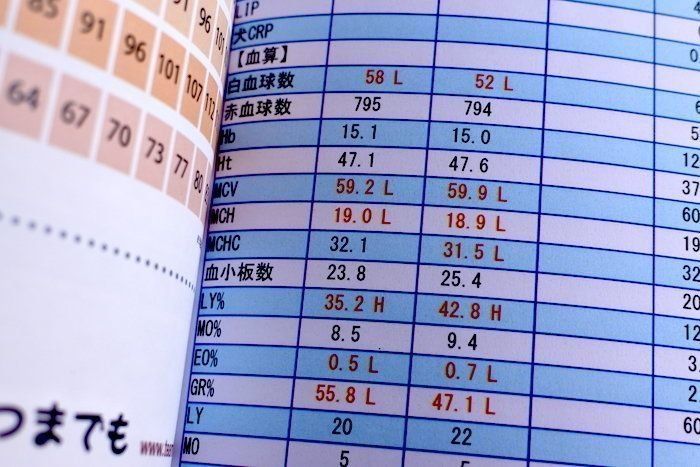 85 91 96 101 107 112
91 96 101
64 67 70 73 77 80
つまでも www.
LIP
犬CRP
【血算】
白血球数 58 L 52 L
赤血球数 795 794
Hb 15.1 15.0
Ht 47.1 47.6
MCV 59.2 L 59.9 L
MCH 19.0 L 18.9 L
MCHC 32.1 31.5 L
血小板数 23.8 25.4
LY% 35.2 H 42.8 H
MO% 8.5 9.4
EO% 0.5 L 0.7 L
GR% 55.8 L 47.1 L
LY 20 22
MO 5 5